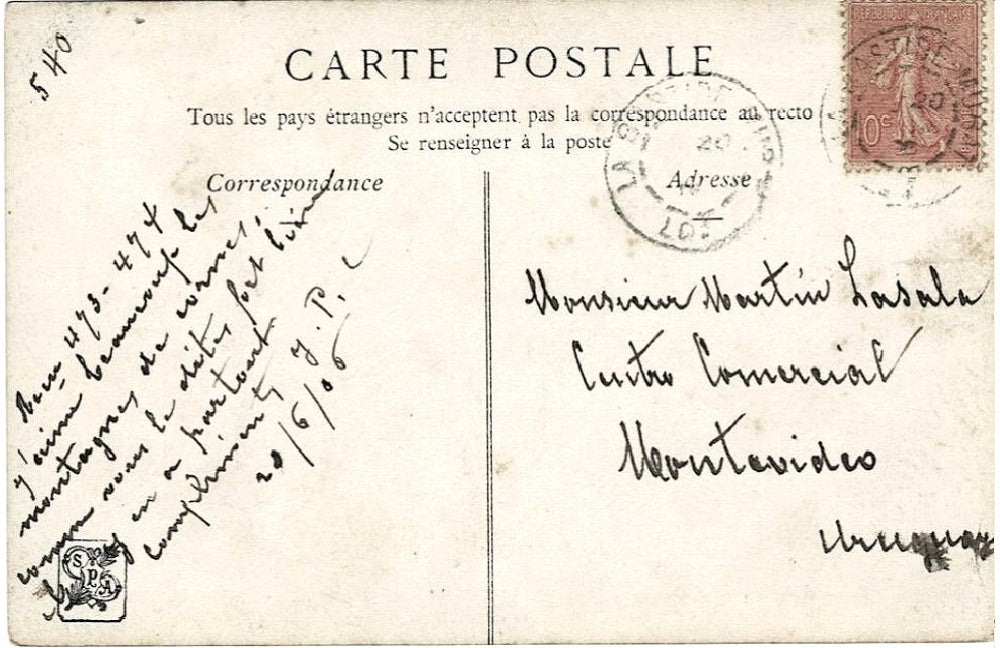 540
CARTE POSTALE
Tous les pays étrangers n'acceptent pas la correspondance au recto
Se renseigner à la poste
Correspondance
Adresse
RÉPUBLIQUE FRANÇAISE
10c
LA BASTIDE-MURAT
20
LOT
Reçu 473-474
J'aime beaucoup les
montagnes de cornes,
comme vous le dites fort bien
il y en a partout
compliments J. P.
20/6/06
Monsieur Martin Lasala
Centro Comercial
Montevideo
Uruguay
SPA